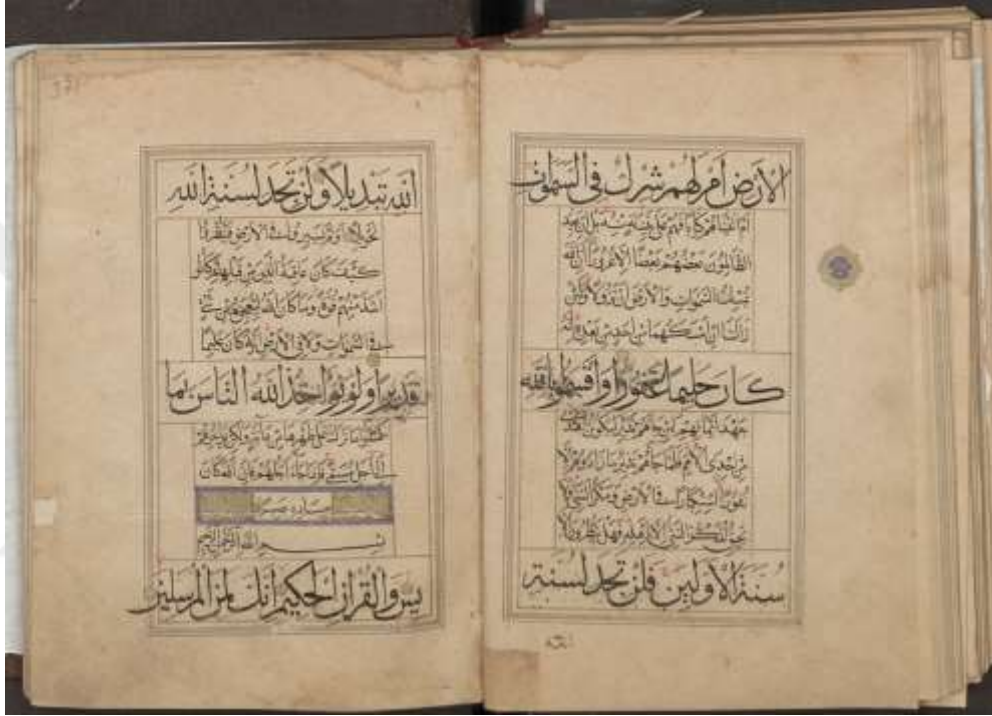 الارض ام لهم شرك في السموات
ام اتيناهم كتابا فهم على بينة منه بل ان يعد
الظالمون بعضهم بعضا الا غرورا ان الله
يمسك السموات والارض ان تزولا ولئن
زالتا ان امسكهما من احد من بعده انه
كان حليما غفورا واقسموا بالله
جهد ايمانهم لئن جاءهم نذير ليكونن اهدى
من احدى الامم فلما جاءهم نذير ما زادهم الا
نفورا استكبارا في الارض ومكر السيئ ولا
يحيق المكر السيئ الا باهله فهل ينظرون الا
سنة الاولين فلن تجد لسنة
الله
الله تبديلا ولن تجد لسنة الله
تحويلا اولم يسيروا في الارض فينظروا
كيف كان عاقبة الذين من قبلهم وكانوا
اشد منهم قوة وما كان الله ليعجزه من شيء
في السموات ولا في الارض انه كان عليما
قديرا ولو يؤاخذ الله الناس بما
كسبوا ما ترك على ظهرها من دابة ولكن يؤخرهم
الى اجل مسمى فاذا جاء اجلهم فان الله كان
بعباده بصيرا
بسم الله الرحمن الرحيم
يس والقران الحكيم انك لمن المرسلين